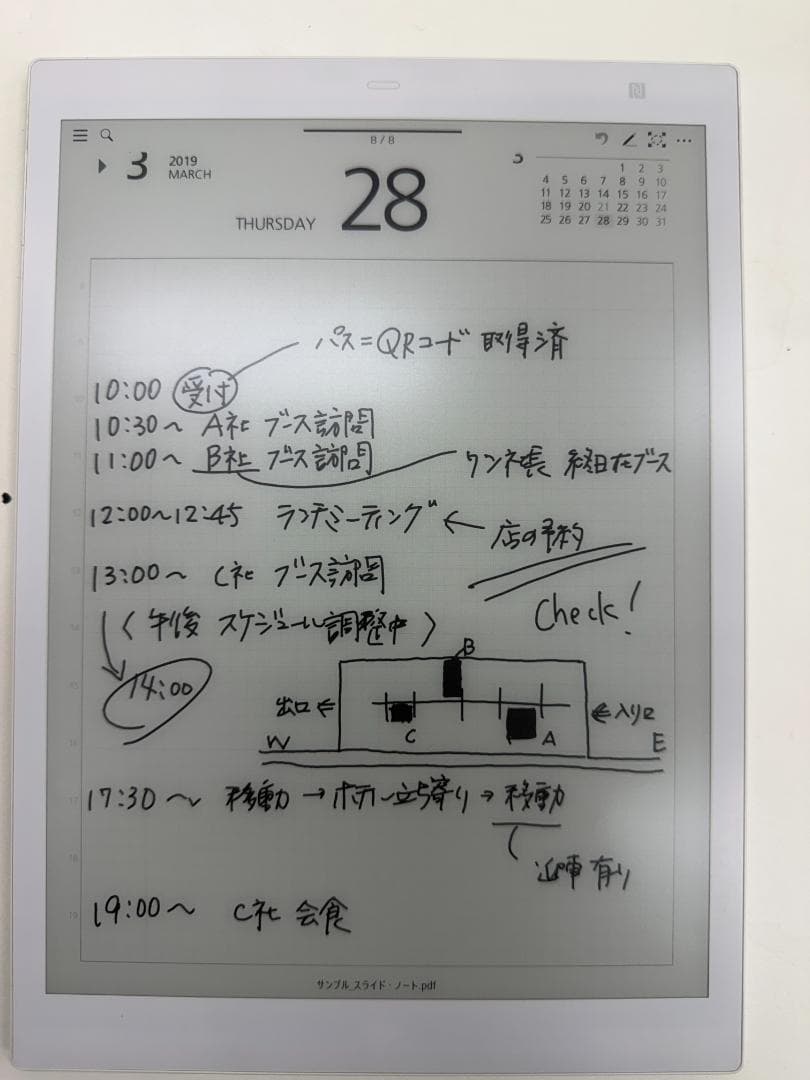 8/8
3 2019 MARCH
THURSDAY 28
3
1 2 3
4 5 6 7 8 9 10
11 12 13 14 15 16 17
18 19 20 21 22 23 24
25 26 27 28 29 30 31
パス=QRコード 取得済
10:00 受付
10:30〜 A社 ブース訪問
11:00〜 B社 ブース訪問
ブース
12:00〜12:45 ランチミーティング ← 店の予約
13:00〜 C社 ブース訪問
Check!
(午後 スケジュール調整中)
14:00
B
出口 ⇐
⇐ 入り口
C
A
W
E
17:30〜 移動 → ホテル立ち寄り → 移動
有り
19:00〜 C社 会食
サンプル_スライド・ノート.pdf